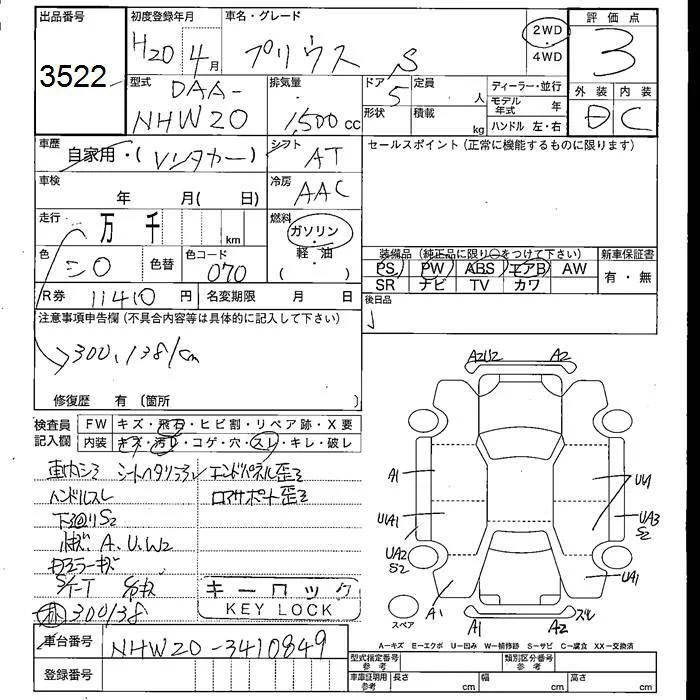 出品番号
3522
初度登録年月
H20年4月
車名・グレード
プリウス S
2WD
・
4WD
評価点
3
型式
DAA-
NHW20
排気量
1,500cc
ドア
5
形状
定員
人
積載
kg
ディーラー・並行
モデル年式 年
ハンドル 左・右
外装
D
内装
C
車歴
自家用・(レンタカー)
シフト
AT
セールスポイント (正常に機能するものに限ります)
車検
年 月(日)
冷房
AAC
走行
万 千
km
燃料
ガソリン
・
(軽・油)
色
シロ
色替
色コード
070
装備品 (純正品に限り○をつけて下さい)
新車保証書
PS PW ABS エアB AW
SR ナビ TV カワ
有・無
R券 11410円
名変期限 月 日
後日品
注意事項申告欄 (不具合内容等は具体的に記入して下さい)
300,138km
修復歴 有 (箇所 )
検査員
記入欄
FW
キズ・飛石・ヒビ割・リペア跡・X要
内装
キズ・汚れ・コゲ・穴・スレ・キレ・破レ
車内シミ シートヘタリ
エンドパネル歪ミ
ハンドルスレ
コアサポート歪ミ
下廻りS2
A、U、W2
300138
キーロック
KEY LOCK
A2U2
A2
A1
U1A1
UA2
S2
A1
A1
A2
スレ
UA1
UA3
S2
UA1
スペア
A-キズ E-エクボ U-凹み W-補修跡 S-サビ C-腐食 XX-交換済
車台番号
NHW20-3410849
登録番号
型式指定番号
参考
類別区分番号
参考
車庫証明用
参考
長さ cm
幅 cm
高さ cm